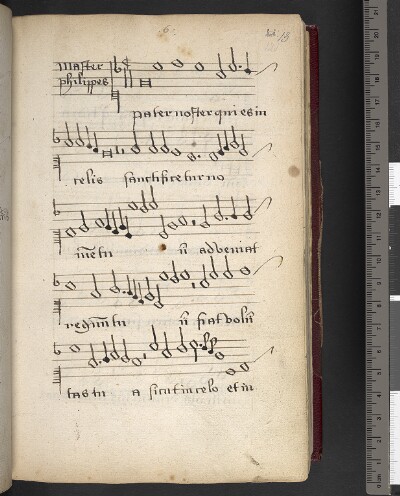 master
philippes
pater noster qui es in
celis sanctificetur no
adveniat
fiat volū
tas tu a sicut in celo et in